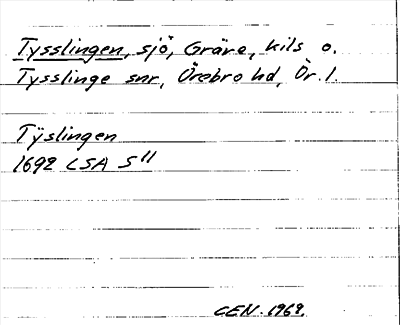 Tysslingen, sjö, Gräve, Kils o.
Tysslinge snr, Örebro hd, Ör. l.
Tÿslingen
1692 LSA S 11
CEN. 1969.